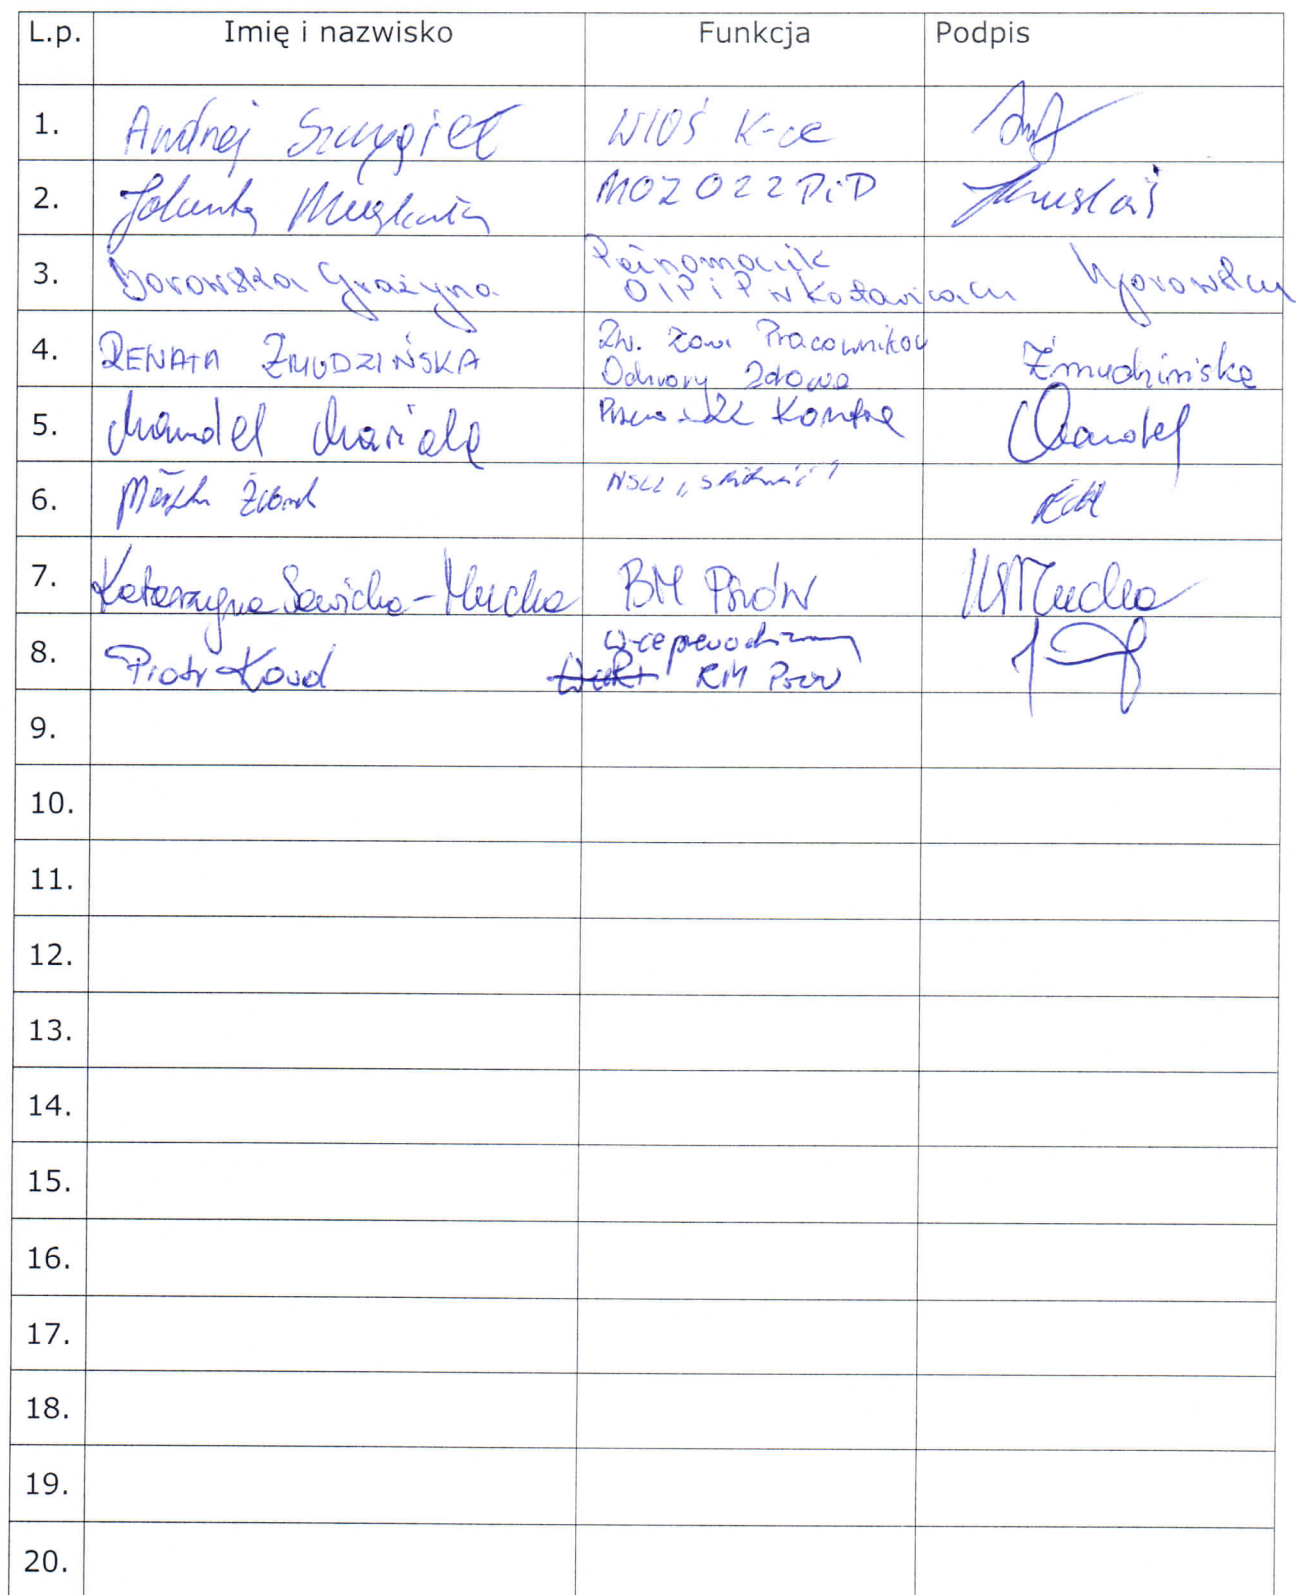 L.p. Imię i nazwisko Funkcja Podpis
1. Andrzej Szczygieł WIOŚ K-ce
2. Jolanta MOZ OZZPiP
3. Borowska Grażyna Pełnomocnik
OIPiP w Katowicach Borowska
4. RENATA ŻMUDZIŃSKA Zw. Zaw. Pracowników
Ochrony Zdrowia Żmudzińska
5. Mandel Mariola Mandel
6. NSZZ „Solidarność"
7. Katarzyna Sawicka-Mucha BM Pszów KSMucha
8. Piotr Kowol Wiceprzewodniczący
RM Pszów
9.
10.
11.
12.
13.
14.
15.
16.
17.
18.
19.
20.